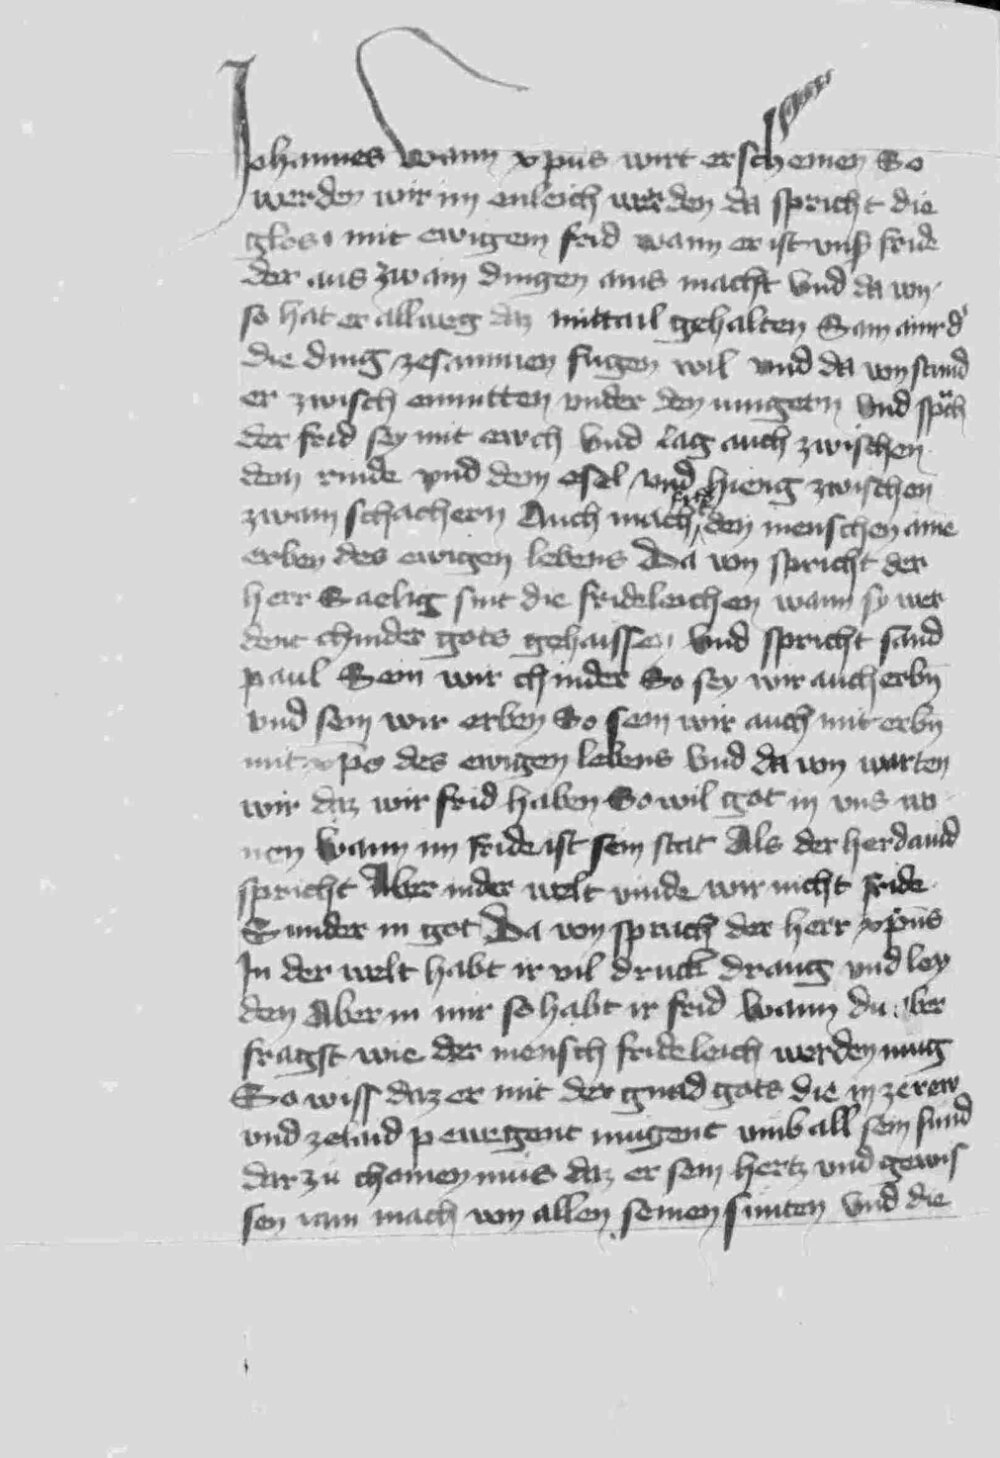 Johannes Wann xpus wirt erscheinen So
werden wir im enleich werden da spricht die
glos mit ewigem frid wann er ist vnser fride
der aus zwain dingen ains macht Vnd da von
so hat er allweg daz mittail gehalten Sam ainer der
die ding zesammen fugen wil vnd da von stund
er zwisch enmitten vnder den iungern Vnd sprach
der frid sey mit ewch Vnd lag auch zwischen
dem rinde vnd dem esel vnd hieng zwischen
zwain schachern Auch macht frid den menschen aine
erben des ewigen lebens Da von spricht der
herr Saelig sint die frideleichen wann sy wer
dent chinder gots gehaissen Vnd spricht sand
paul Sein wir chinder So sey wir auch erbn
vnd sein wir erben So sein wir auch mit erbn
mit xpo des ewigen lebens Vnd da von warten
wir daz wir frid haben So wil got in vns wo
nen Wann im fride ist sein stat Als der her dauid
spricht Aber in der welt vinde wir nicht fride
Sunder in got Da von sprach der herr xpus
In der welt habt ir vil druck drang vnd ley
den Aber in mir so habt ir frid Wann du aber
fragst wie der mensch frideleich werden mug
So wiss daz er mit der gnad gots die in ze rew
vnd ze laid pewegent mugent vmb all sein sund
dar zu chomen mus daz er sein hertz vnd gewis
sen rain mach von allen seinen sunten Vnd die